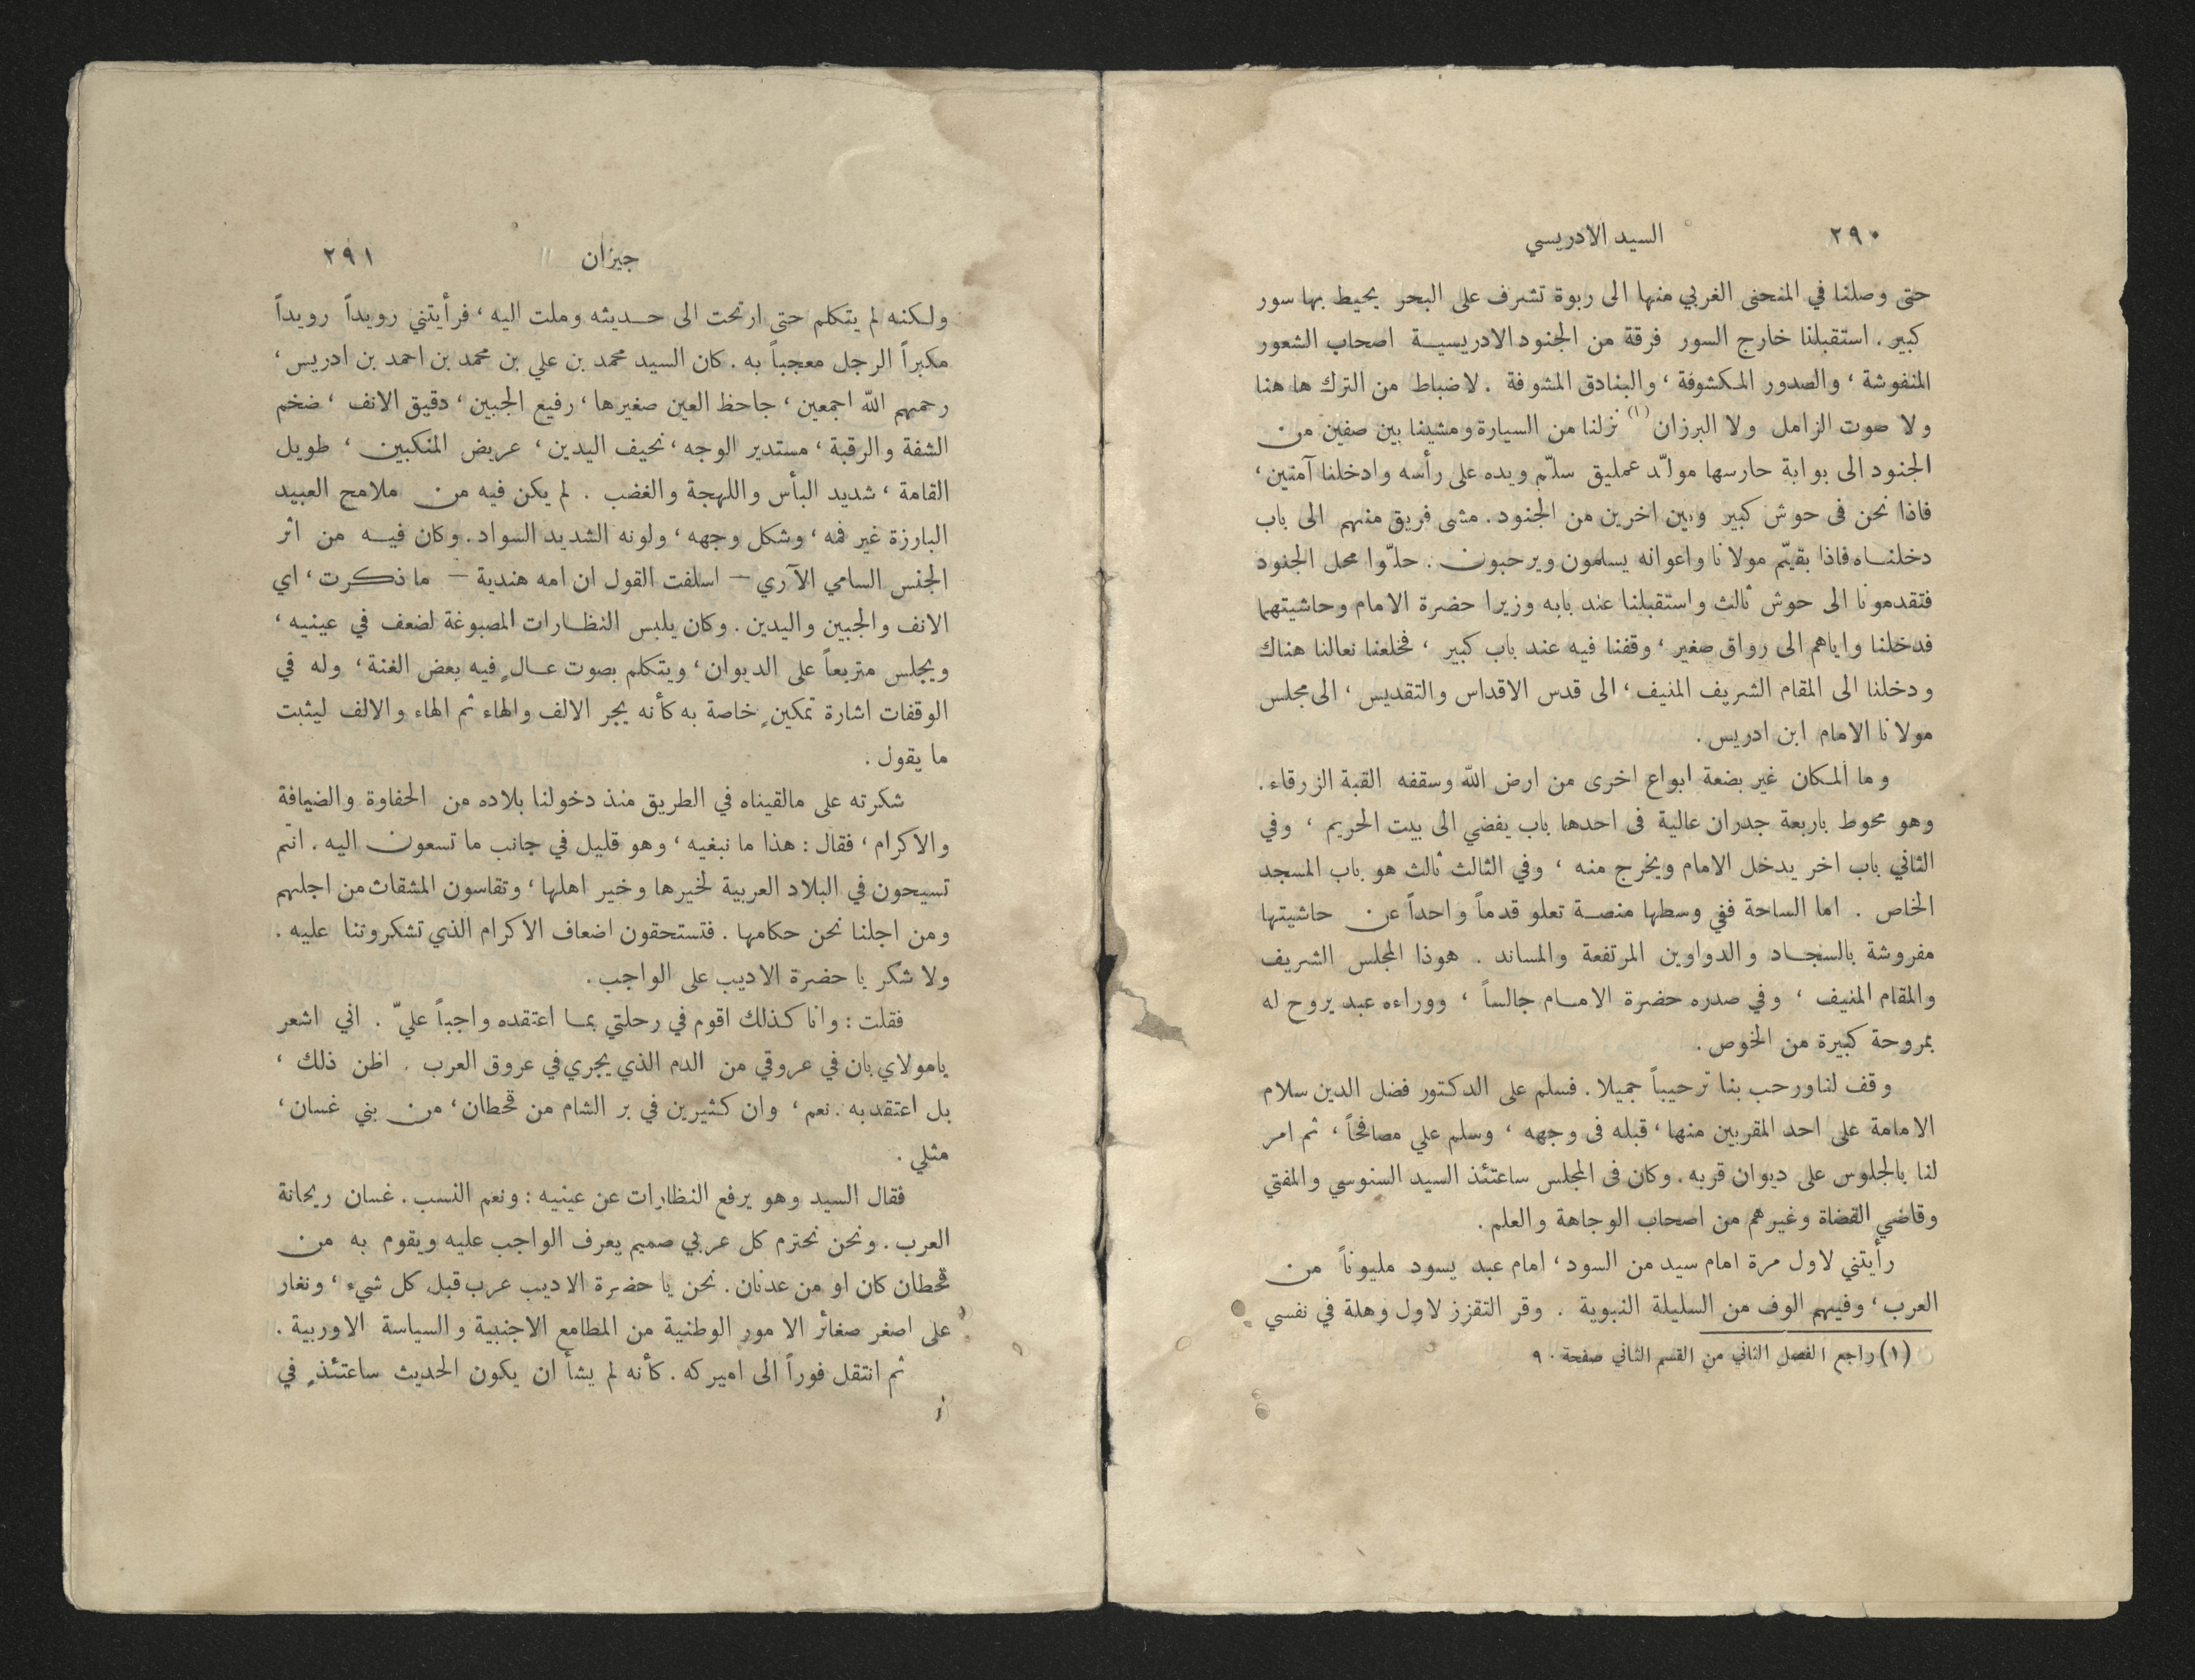 ٢٩٠ السيد الادريسي
حتى وصلنا في المنحنى الغربي منها الى ربوة تشرف على البحر يحيط بها سور
كبير. استقبلنا خارج السور فرقة من الجنود الادريسية اصحاب الشعور
المنفوشة، والصدور المكشوفة، والبنادق المشوفة. لا ضباط من الترك ها هنا
ولا صوت الزامل ولا البرزان (١) نزلنا من السيارة ومشينا بين صفين من
الجنود الى بوابة حارسها مولّد عمليق سلّم ويده على رأسه وادخلنا آمنين،
فاذا نحن في حوش كبير وبين اخرين من الجنود. مشى فريق منهم الى باب
دخلناه فاذا بقيّم مولانا واعوانه يسلمون ويرحبون. حلّوا محل الجنود
فتقدمونا الى حوش ثالث واستقبلنا عند بابه وزيرا حضرة الامام وحاشيتهما
فدخلنا واياهم الى رواق صغير، وقفنا فيه عند باب كبير، فخلعنا نعالنا هناك
ودخلنا الى المقام الشريف المنيف، الى قدس الاقداس والتقديس، الى مجلس
مولانا الامام ابن ادريس.
وما المكان غير بضعة ابواع اخرى من ارض الله وسقفه القبة الزرقاء.
وهو محوط باربعة جدران عالية في احدها باب يفضي الى بيت الحريم، وفي
الثاني باب اخر يدخل الامام ويخرج منه، وفي الثالث ثالث هو باب المسجد
الخاص. اما الساحة ففي وسطها منصة تعلو قدماً واحداً عن حاشيتها
مفروشة بالسجاد والدواوين المرتفعة والمساند. هوذا المجلس الشريف
والمقام المنيف، وفي صدره حضرة الامام جالساً، ووراءه عبد يروح له
بمروحة كبيرة من الخوص.
وقف لنا ورحب بنا ترحيباً جميلا. فسلم على الدكتور فضل الدين سلام
الامامة على احد المقربين منها، قبله في وجهه، وسلم علي مصافحاً، ثم امر
لنا بالجلوس على ديوان قربه. وكان في المجلس ساعتئذ السيد السنوسي والمفتي
وقاضي القضاة وغيرهم من اصحاب الوجاهة والعلم.
رأيتني لاول مرة امام سيد من السود، امام عبد يسود مليوناً من
العرب، وفيهم الوف من السليلة النبوية. وقر التقزز لاول وهلة في نفسي
(١) راجع الفصل الثاني من القسم الثاني صفحة ٩٠
جيزان ٢٩١
ولكنه لم يتكلم حتى ارتحت الى حديثه وملت اليه، فرأيتني رويداً رويداً
مكبراً الرجل معجباً به. كان السيد محمد بن علي بن محمد بن احمد بن ادريس،
رحمهم الله اجمعين، جاحظ العين صغيرها، رفيع الجبين، دقيق الانف، ضخم
الشفة والرقبة، مستدير الوجه، نحيف اليدين، عريض المنكبين، طويل
القامة، شديد البأس واللهجة والغضب. لم يكن فيه من ملامح العبيد
البارزة غير فمه، وشكل وجهه، ولونه الشديد السواد. وكان فيه من اثر
الجنس السامي الآري — اسلفت القول ان امه هندية — ما ذكرت، اي
الانف والجبين واليدين. وكان يلبس النظارات المصبوغة لضعف في عينيه،
ويجلس متربعاً على الديوان، ويتكلم بصوت عالٍ فيه بعض الغنة، وله في
الوقفات اشارة تمكينٍ خاصة به كأنه يجر الالف والهاء ثم الهاء والالف ليثبت
ما يقول.
شكرته على مالقيناه في الطريق منذ دخولنا بلاده من الحفاوة والضيافة
والاكرام، فقال: هذا ما نبغيه، وهو قليل في جانب ما تسعون اليه. انتم
تسيحون في البلاد العربية لخيرها وخير اهلها، وتقاسون المشقات من اجلهم
ومن اجلنا نحن حكامها. فتستحقون اضعاف الاكرام الذي تشكروتنا عليه.
ولا شكر يا حضرة الاديب على الواجب.
فقلت: وانا كذلك اقوم في رحلتي بما اعتقده واجباً عليّ. اني اشعر
يامولاي بان في عروقي من الدم الذي يجري في عروق العرب. اظن ذلك،
بل اعتقد به. نعم، وان كثيرين في بر الشام من قحطان، من بني غسان،
مثلي.
فقال السيد وهو يرفع النظارات عن عينيه: ونعم النسب. غسان ريحانة
العرب. ونحن نحترم كل عربي صميم يعرف الواجب عليه ويقوم به من
قحطان كان او من عدنان. نحن يا حضرة الاديب عرب قبل كل شيء، ونغار
على اصغر صغائر الامور الوطنية من المطامع الاجنبية والسياسة الاوربية.
ثم انتقل فوراً الى اميركه. كأنه لم يشأ ان يكون الحديث ساعتئذٍ في